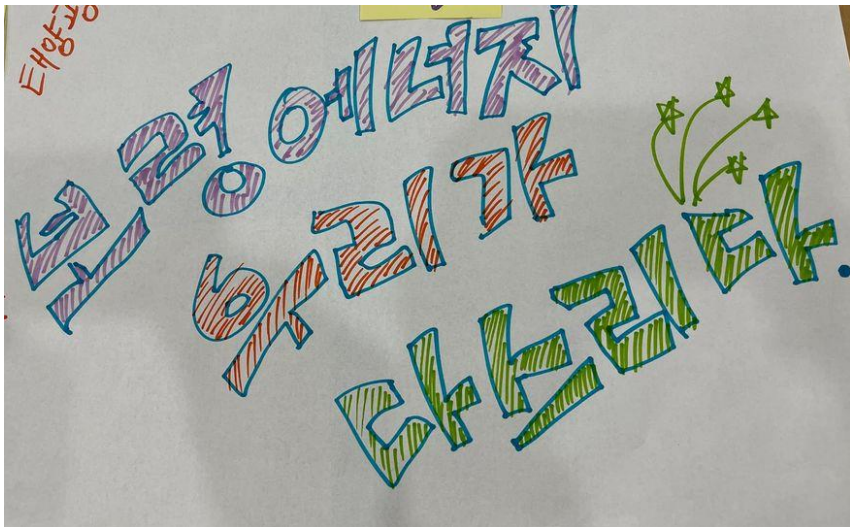 태양광
보령에너지
우리가
다스리다.